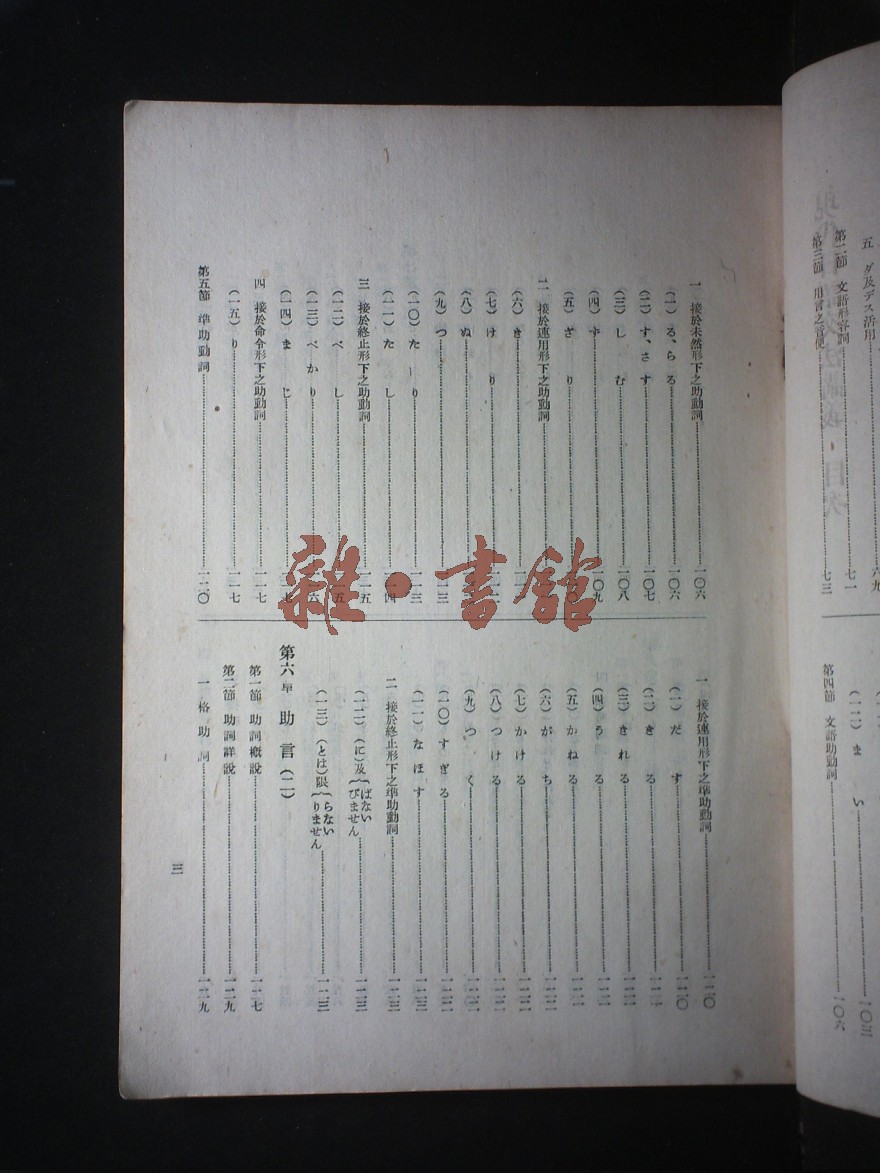 五 ダ及デス活用 六九
第二節 文語形容詞 七一
第三節 用言之音便 七三
(一二)ま い 一〇三
第四節 文語助動詞 一〇六
一 接於未然形下之助動詞 一〇六
(一)る、らる 一〇六
(二)す、さす 一〇七
(三)し む 一〇八
(四)ず 一〇九
(五)ざ り
二 接於連用形下之助動詞
(六)き
(七)け り
(八)ぬ
(九)つ 一一三
(一〇)た り 一一三
(一一)た し 一一四
三 接於終止形下之助動詞 一一五
(一二)べ し 一一五
(一三)べ か り 一一六
(一四)ま じ 一一七
四 接於命令形下之助動詞 一一七
(一五)り 一一七
第五節 準助動詞 一二〇
一 接於連用形下之準助動詞 一二〇
(一)だ す 一二〇
(二)き る 一二一
(三)きれる 一二一
(四)う る 一二一
(五)かねる 一二一
(六)が ち 一二二
(七)かける 一二二
(八)つける 一二二
(九)つ く 一二二
(一〇)すぎる 一二二
(一一)なほす 一二三
二 接於終止形下之準助動詞 一二三
(一二)(に)及{ばない びません 一二三
(一三)(とは)限{らない りません 一二三
第六章 助言(二)
第一節 助詞概説 一二七
第二節 助詞詳説 一二九
一 格助詞 一二九
三
雜·書館